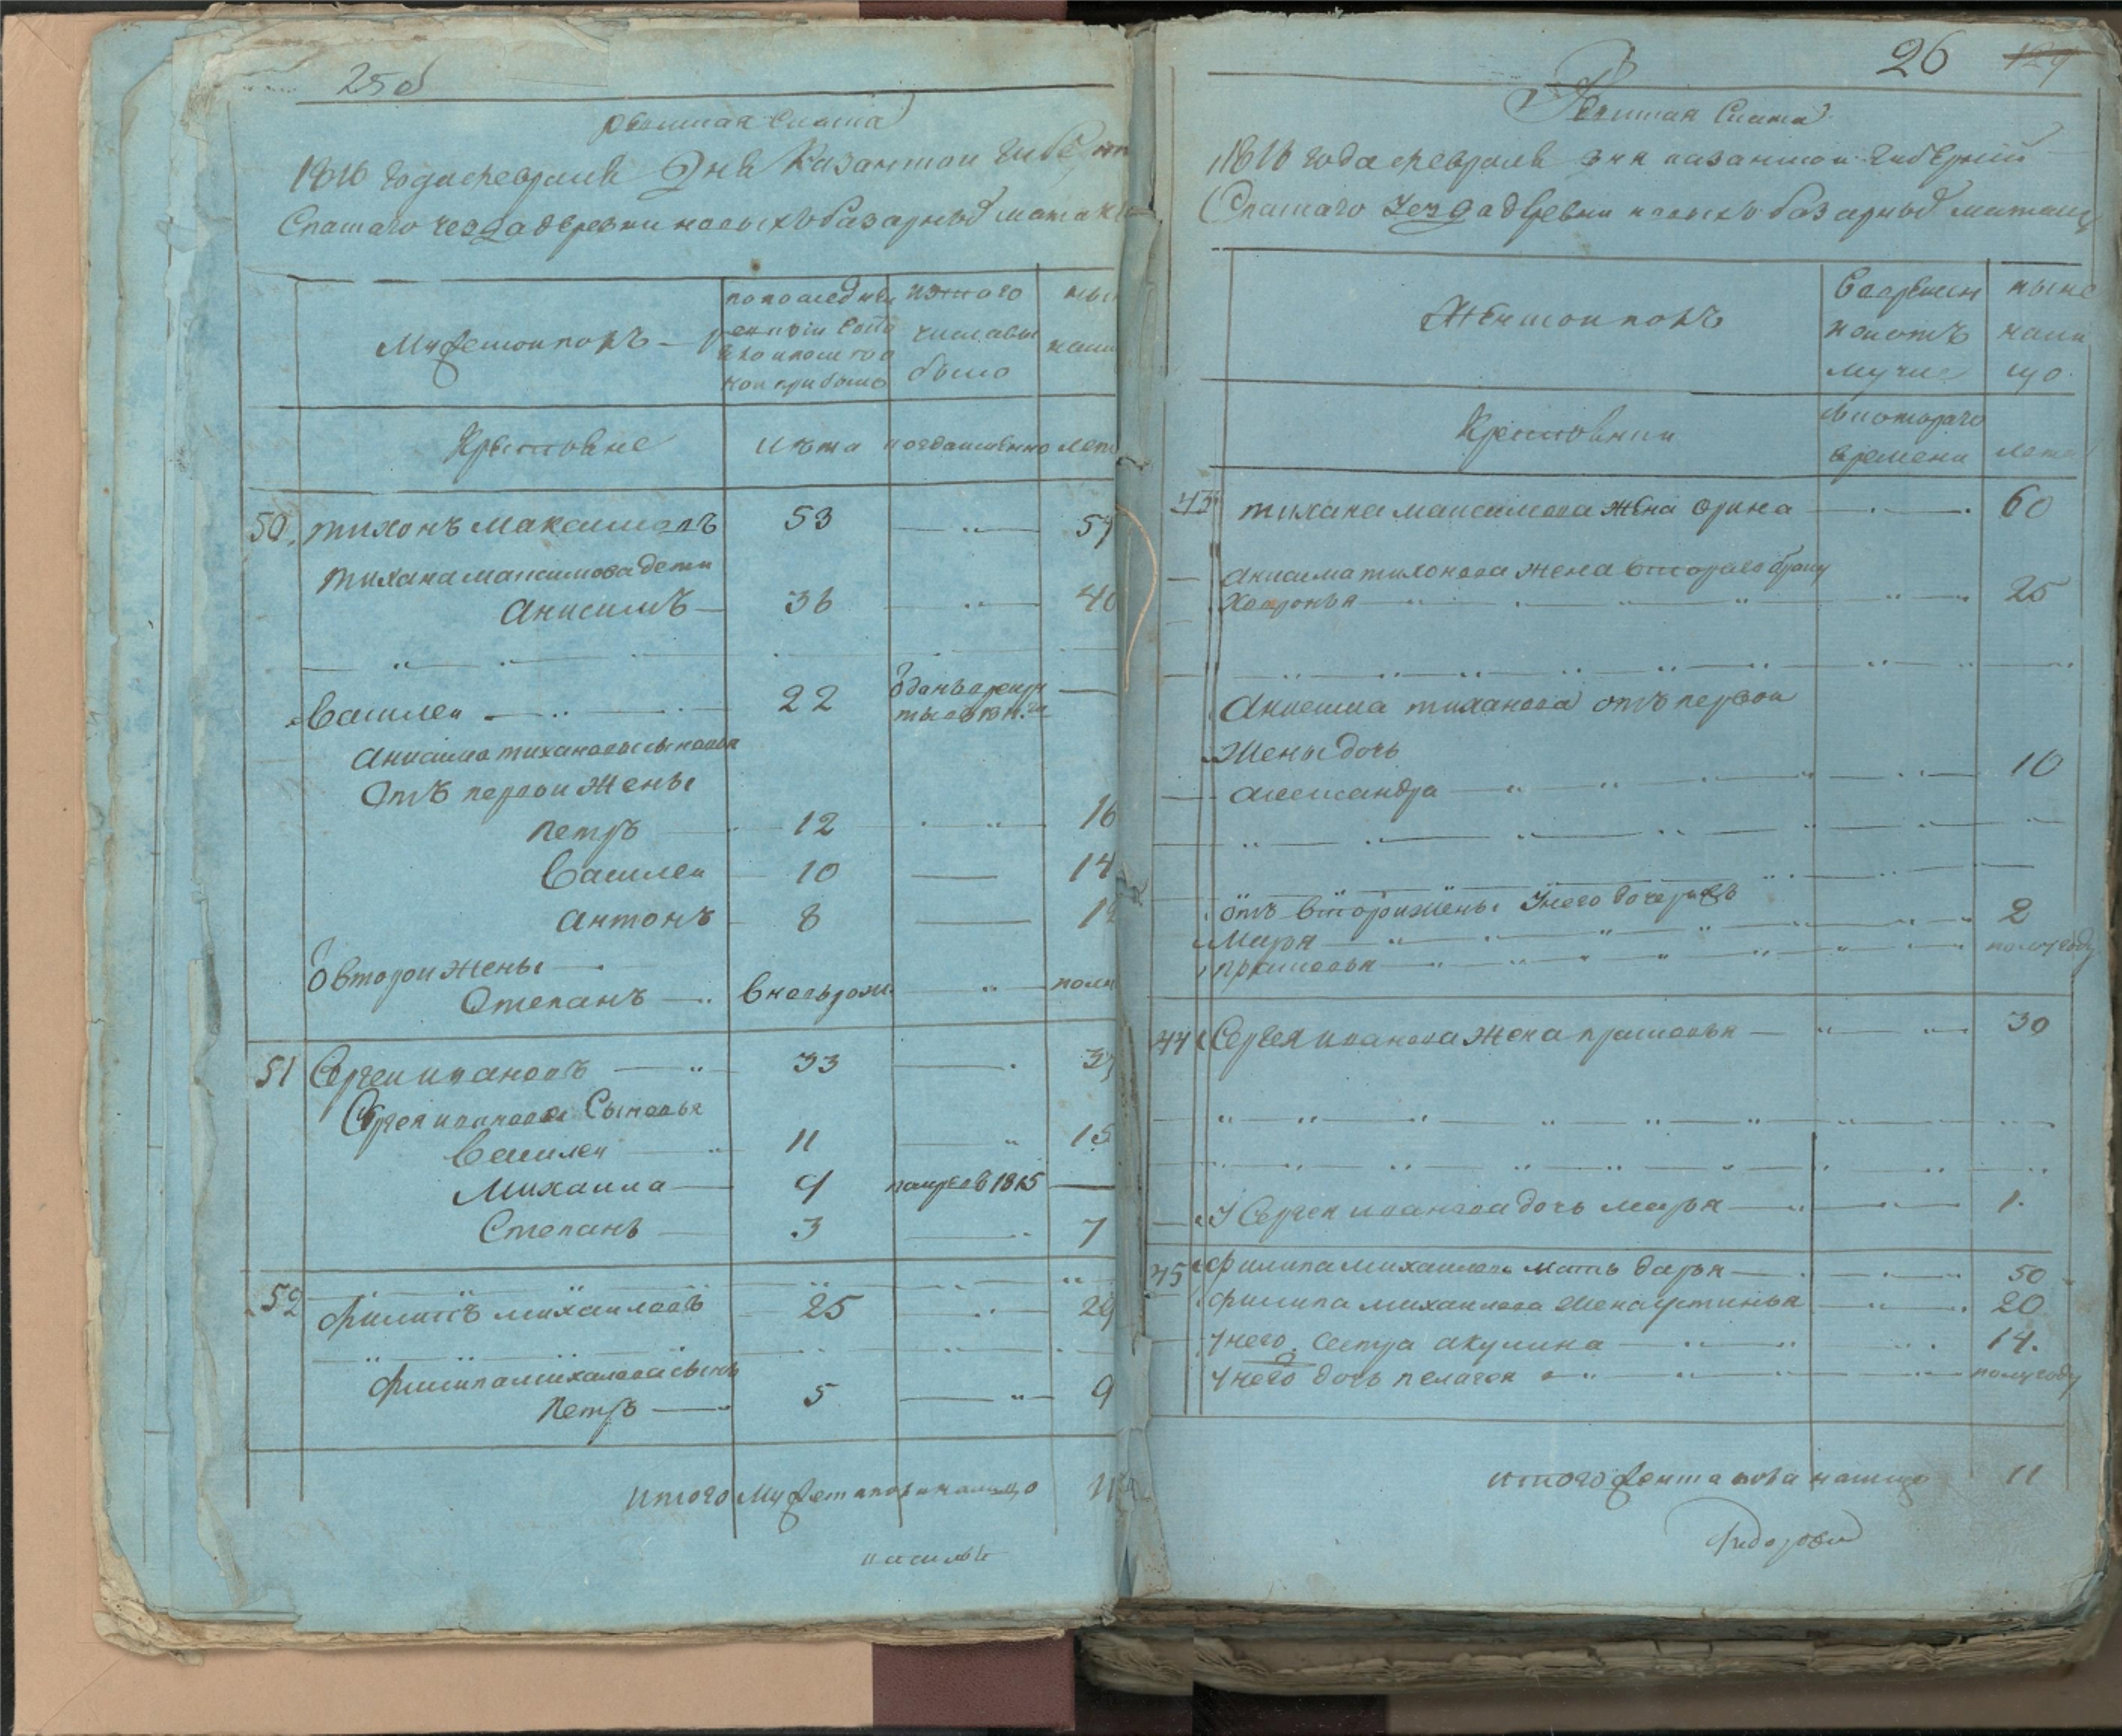 25об
Ревижская Скаска
1816 года февраля дня Казанской губерн
Спаскаго уезда деревни новыхъ базарныхъ матакъ
Мужескои полъ
по последней
ревизiи состо
яло и после тоо
кои прибыло
изтого
числавы
было
ны
нали
Крестьяне
Лѣта
когдаименно
лета
50. тихонъ максимовъ 53 57
тихана максимова дети
Анисимъ 36 40
Василеи 22 оданъ в рекру
ты
Анисима тиханова сыновья
Отъ первои жены
Петръ 12 16
Василеи 10 14
Антонъ 8 12
О второи жены
Степанъ вновьрож. полу
51 Сергеи ивановъ 33 37
Сергея иванова Сыновья
Василеи 11 15
Михаила 9 помре в 1815
Степанъ 3 7
52 Филипъ михаиловъ 25 29
Филипа михалова сынъ
Петръ 5 9
итого мужеска пола налицо 11
26 129
Ревижская Скаска
1816 года февраля дня казанскои губернии
Спаскаго уезда деревни новыхъ базарныхъ матакъ
Женскои полъ
Вовремен
нои отъ
лучке
ныне
нали
цо
Крестьянки
скотораго
времени
лета
43 тихана максимова жена орина 60
анисима тихонова жена втораго браку
Хавронья 25
Анисима тиханова отъ первои
Жены дочь
александра 10
отъ второи жены Унего дочерей
Марья 2
прасковья полугоду
44 Сергея иванова жена прасковья 30
У Сергея иванова дочь марья 1.
45 филипа михаилова мать дарья 50
филипа михаилова жена устинья 20
унего сестра акулина 14.
унего дочь пелагея полугоду
итого женска пола налицо 11